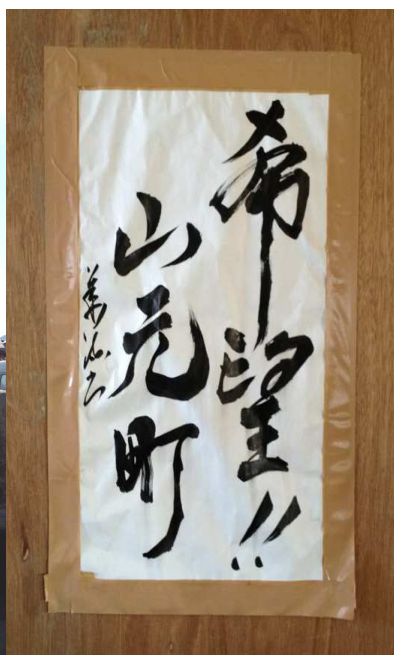 希望!!
山元町